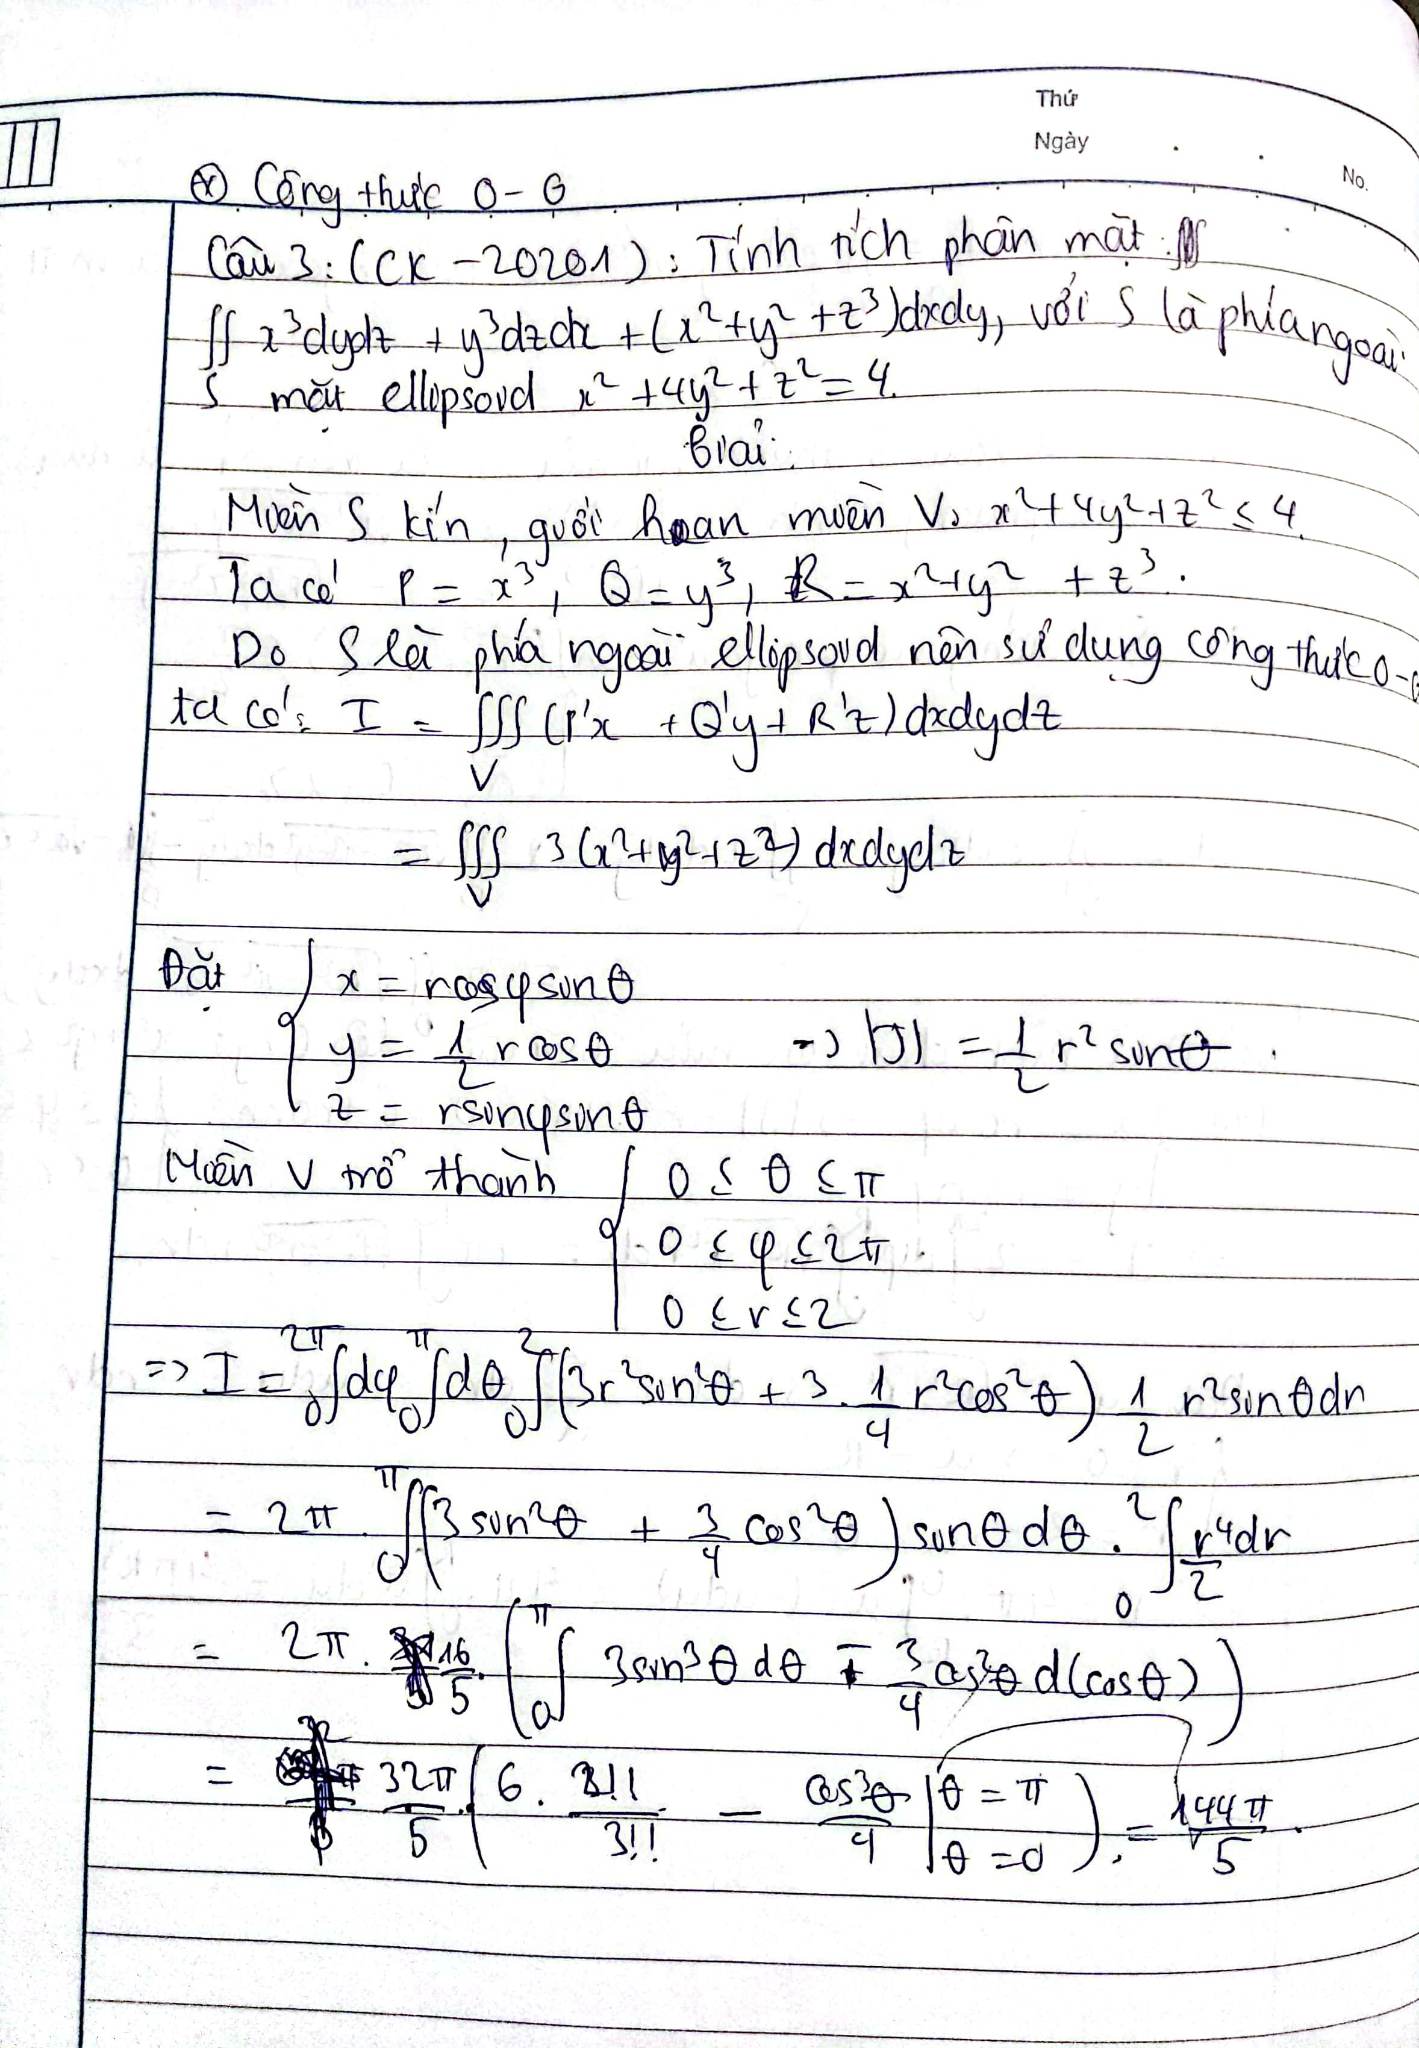 Thứ
Ngày
No.
(*) Công thức O-G
Câu 3: (CK - 20201): Tính tích phân mặt
∬ x³dydz + y³dzdx + (x² + y² + z³)dxdy, với S là phía ngoài
S mặt ellipsoid x² + 4y² + z² = 4.
Giải:
Miền S kín, giới hạn miền V: x² + 4y² + z² ≤ 4
Ta có P = x³, Q = y³, R = x² + y² + z³.
Do S là phía ngoài ellipsoid nên sử dụng công thức O-G
ta có: I = ∭ (P'x + Q'y + R'z) dxdydz
V
= ∭ 3(x² + y² + z²) dxdydz
V
Đặt { x = rcosφsinθ
y = 1/2 rcosθ → |J| = 1/2 r² sinθ.
z = rsinφsinθ
Miền V trở thành { 0 ≤ θ ≤ π
0 ≤ φ ≤ 2π.
0 ≤ r ≤ 2
=> I = ∫₀^2π dφ ∫₀^π dθ ∫₀^2 (3r²sin²θ + 3. 1/4 r²cos²θ) 1/2 r²sinθdr
= 2π. ∫₀^π (3sin²θ + 3/4 cos²θ) sinθdθ. ∫₀^2 r⁴dr/2
= 2π. 16/5. (∫₀^π 3sin³θdθ - 3/4 cos²θ d(cosθ))
= 32π/5. (6. 2!!/3!! - cos³θ/4 |θ = π θ = 0). = 144π/5.